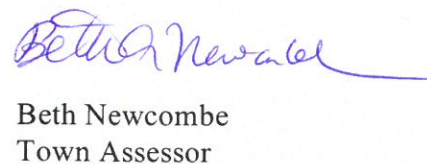 Beth Newcombe
Beth Newcombe
Town Assessor